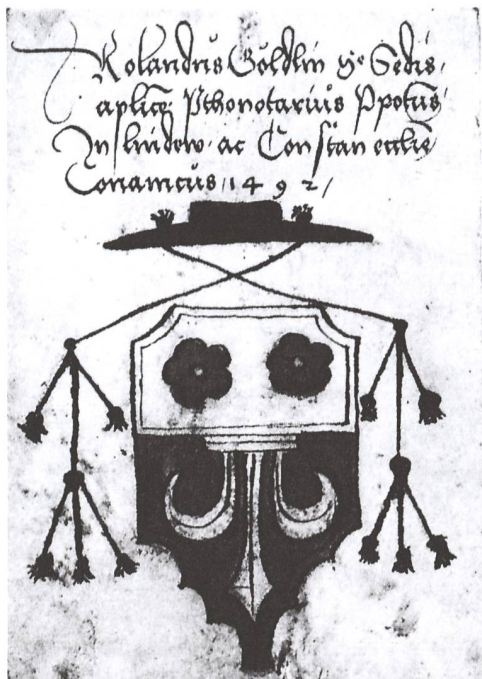 Rolandus Göldlin ge Sedis
aplice Pthonotarius Ppotus
In lindow · ac Constan ecclie
Canonicus / 1492 /